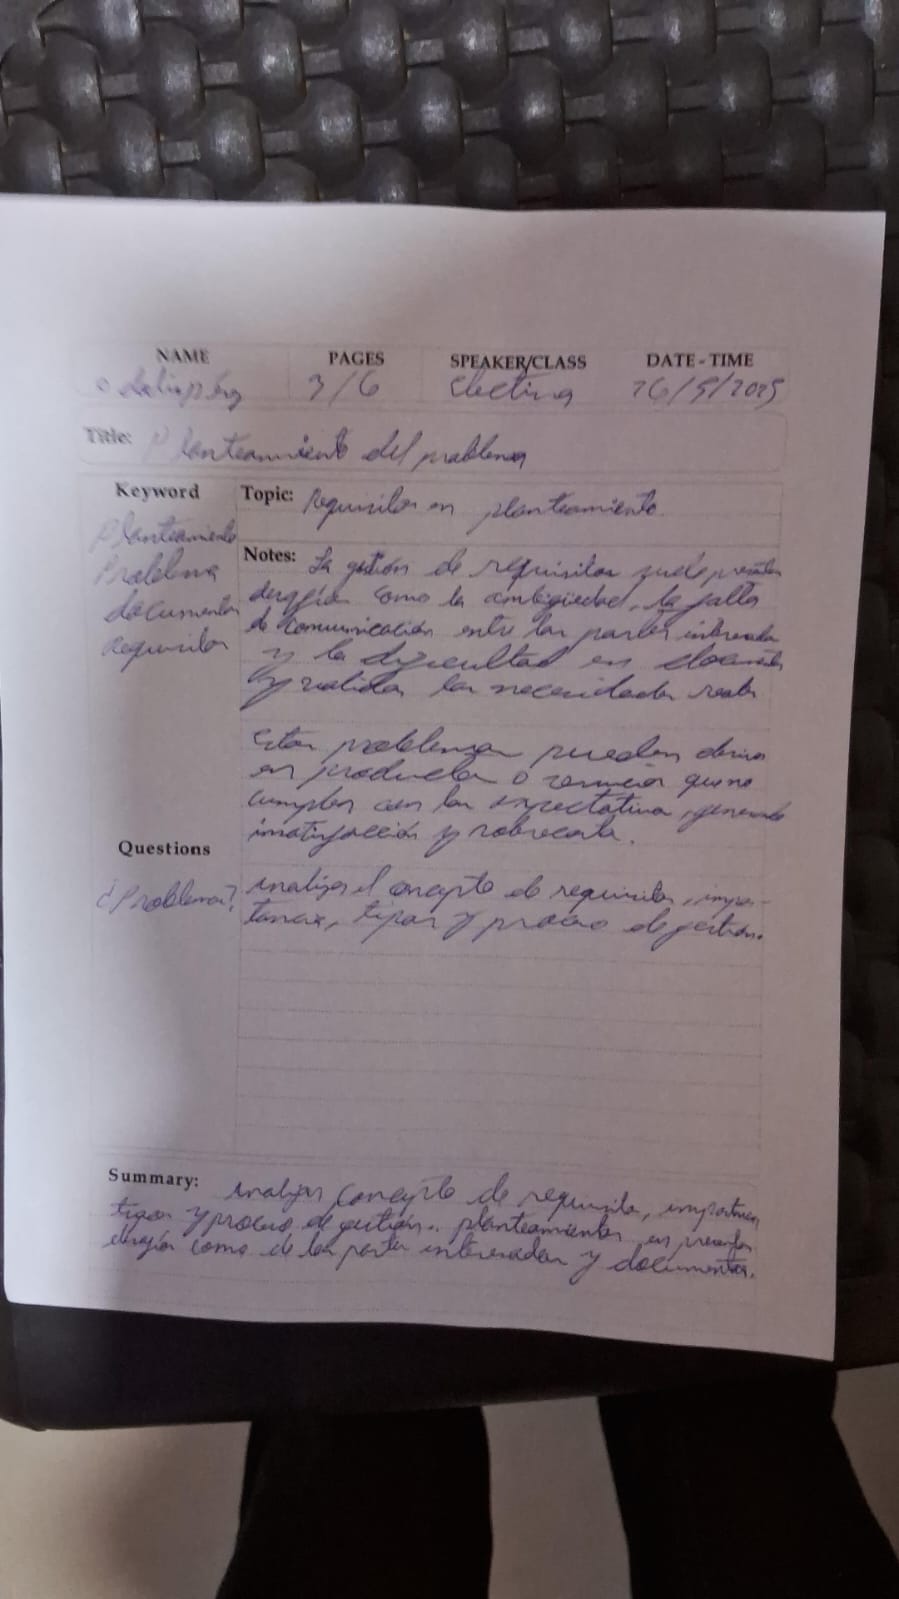 NAME PAGES SPEAKER/CLASS DATE - TIME
3/6 Electiva 26/5/2025
Title: Planteamiento del problema
Keyword
Planteamiento
Problema
documentar
Requisitos
Topic: Requisitos en planteamiento
Notes: La gestión de requisitos suele presentar
desafíos como la ambigüedad, la falta
de comunicación entre las partes interesadas
y la dificultad en documentar
y validar las necesidades reales
Estos problemas pueden derivar
en productos o servicios que no
cumplen con las expectativas, generando
insatisfacción y sobrecosto.
Questions
¿Problema?
analizar el concepto de requisitos, impor-
tancia, tipos y proceso de gestión.
Summary: Analizar concepto de requisito, importancia
tipos y proceso de gestión. planteamientos en presentar
desafíos como de las partes interesadas y documentar.